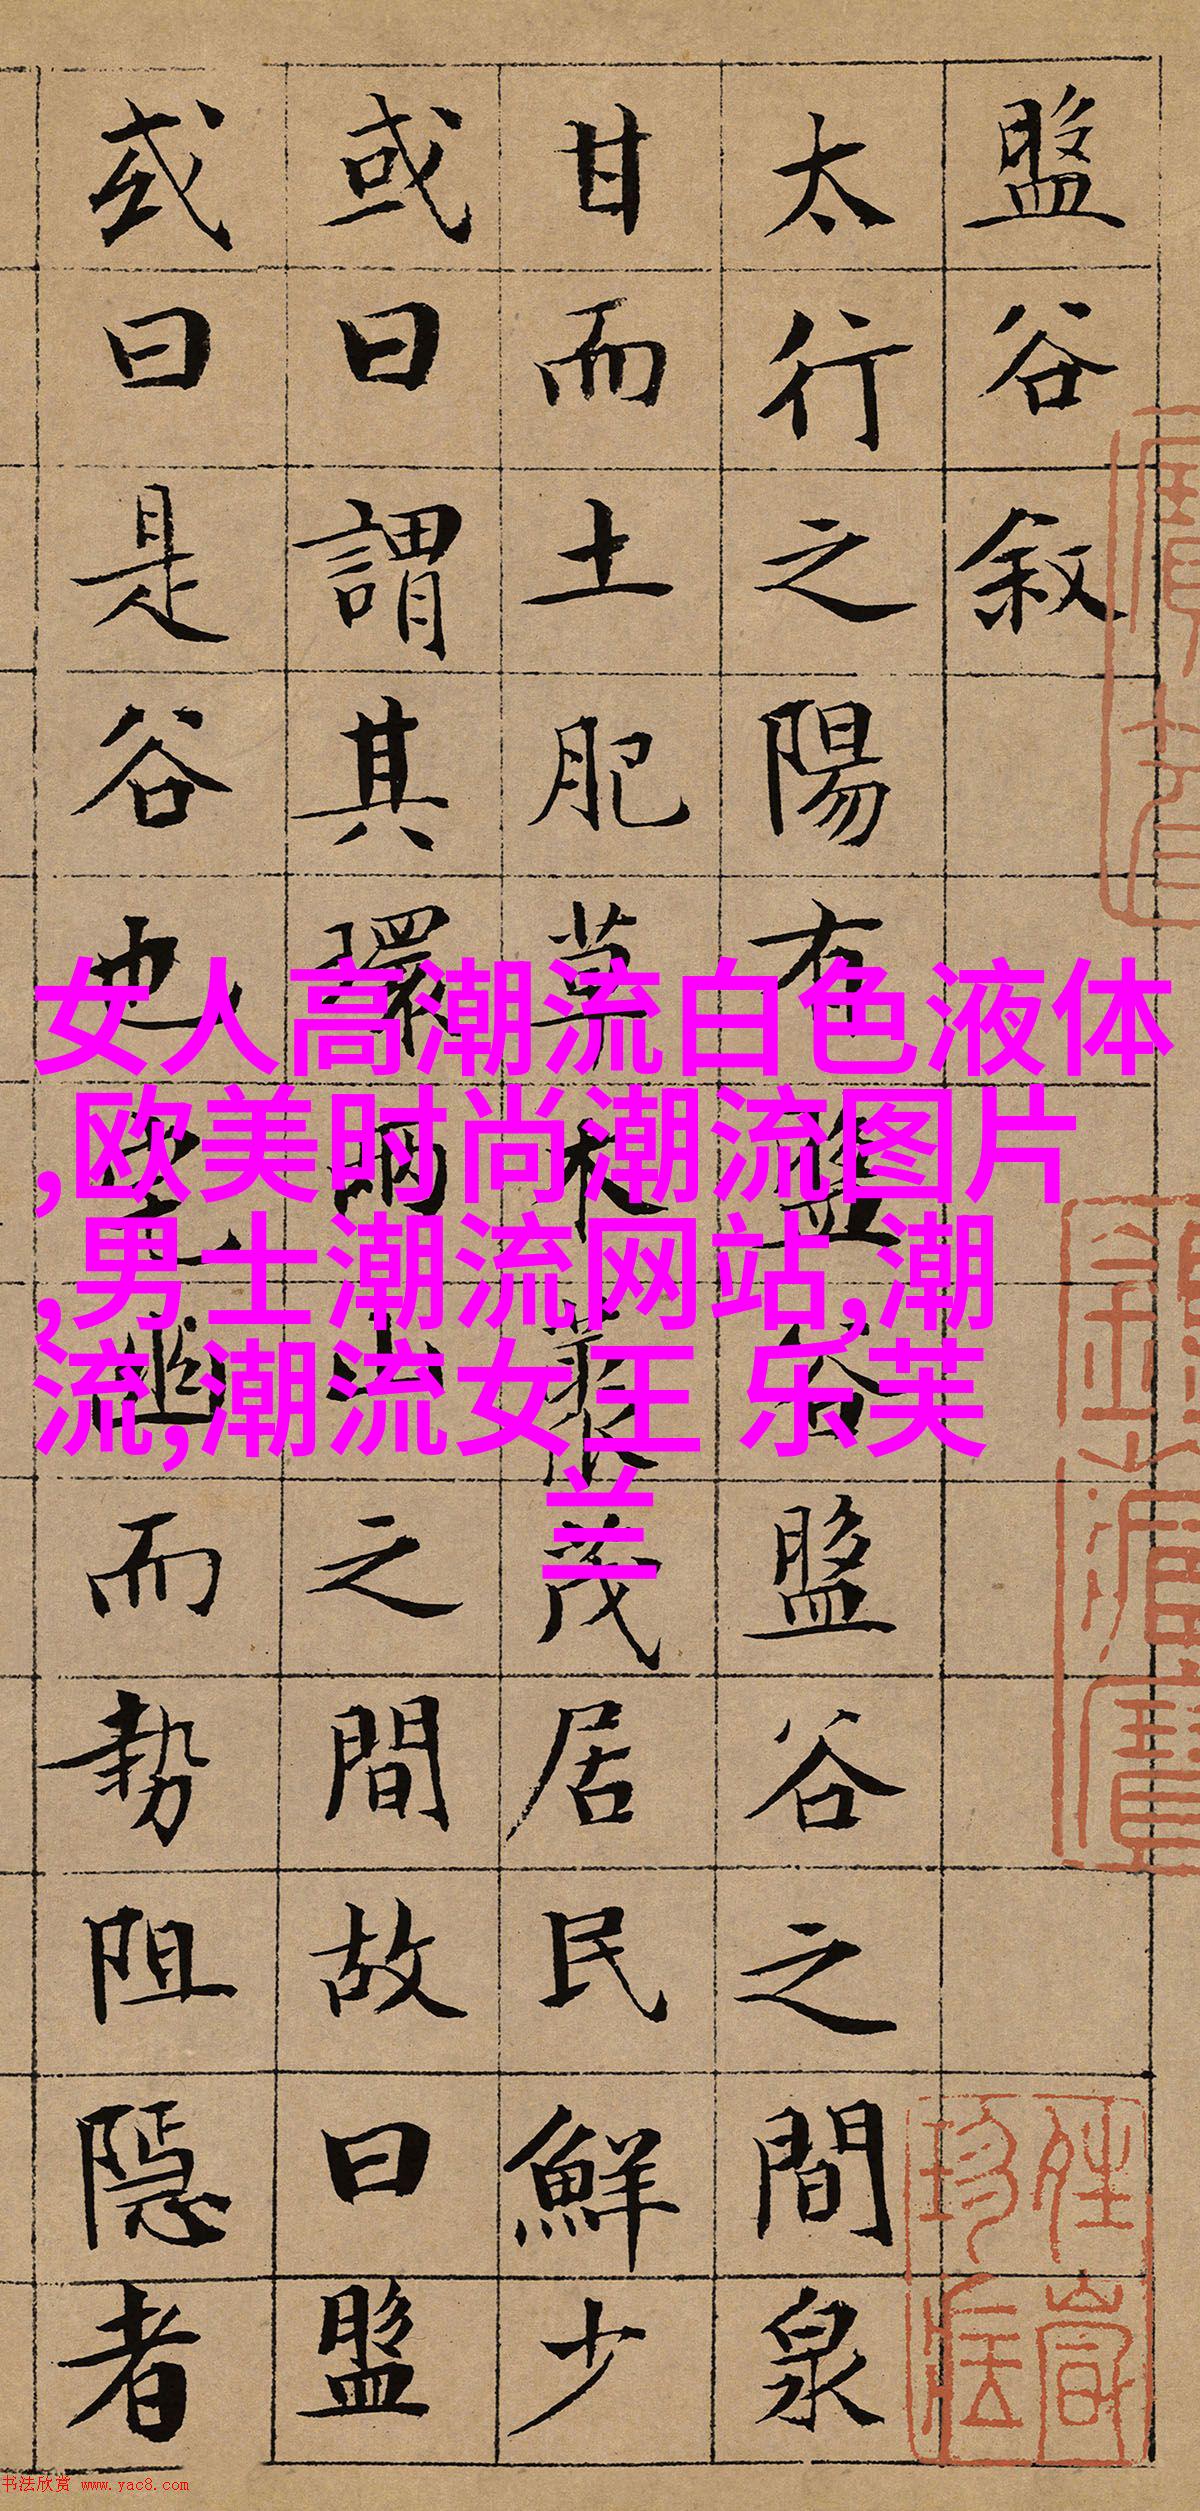 盤谷叙
太行之陽有盤谷盤谷之間泉
甘而土肥草木叢茂居民鮮少
或曰謂其環兩山之間故曰盤
或曰是谷也宅幽而勢阻隱者
女人高潮流白色液体
,欧美时尚潮流图片
,男士潮流网站,潮
流,潮流女王 乐芙
兰
书法欣赏 www.yac8.com